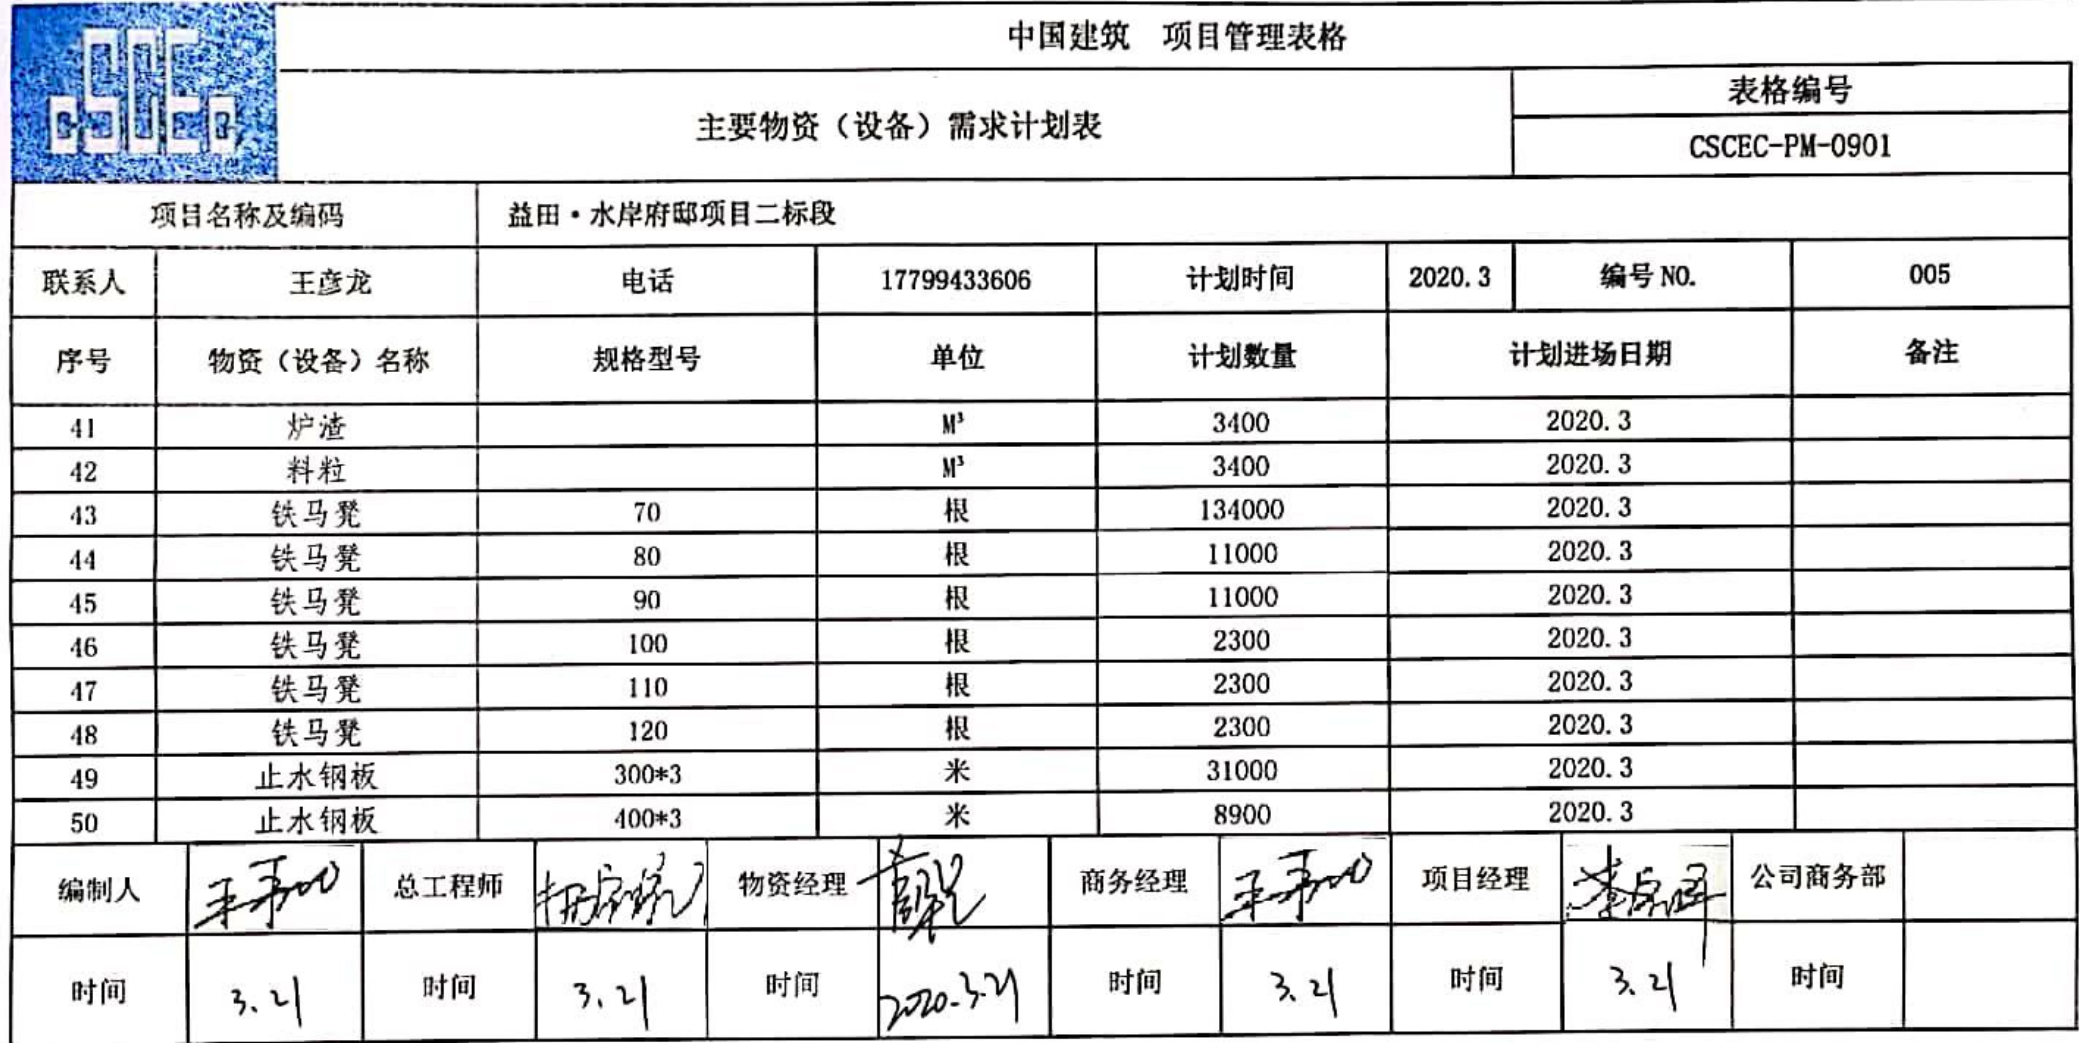 CSCEC
中国建筑 项目管理表格
主要物资（设备）需求计划表
表格编号
CSCEC-PM-0901
项目名称及编码 益田·水岸府邸项目二标段
联系人 王彦龙 电话 17799433606 计划时间 2020.3 编号 NO. 005
序号 物资（设备）名称 规格型号 单位 计划数量 计划进场日期 备注
41 炉渣 M³ 3400 2020.3
42 料粒 M³ 3400 2020.3
43 铁马凳 70 根 134000 2020.3
44 铁马凳 80 根 11000 2020.3
45 铁马凳 90 根 11000 2020.3
46 铁马凳 100 根 2300 2020.3
47 铁马凳 110 根 2300 2020.3
48 铁马凳 120 根 2300 2020.3
49 止水钢板 300*3 米 31000 2020.3
50 止水钢板 400*3 米 8900 2020.3
编制人 总工程师 物资经理 商务经理 项目经理 公司商务部
时间 3.21 时间 3.21 时间 2020.3.21 时间 3.21 时间 3.21 时间